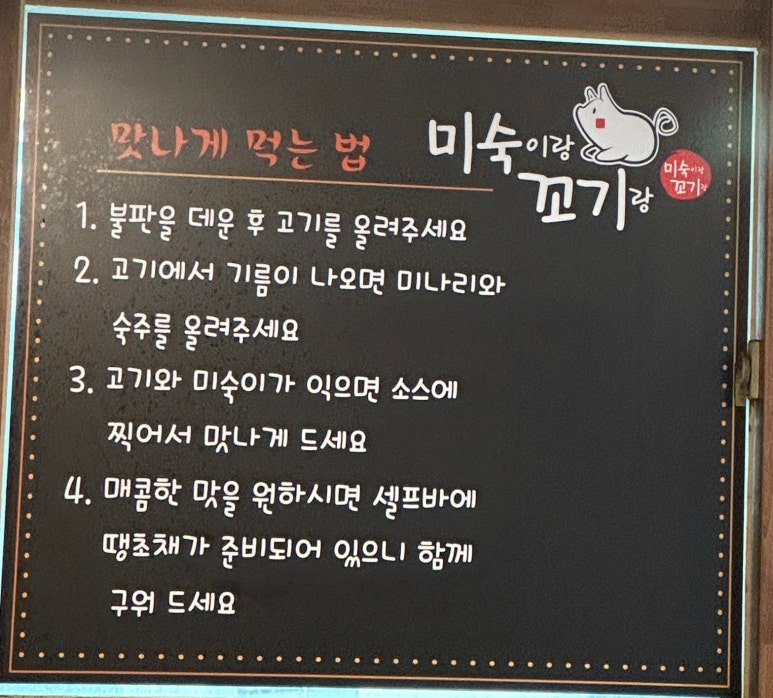 맛나게 먹는 법
미숙이랑
꼬기랑
미숙이랑
꼬기랑
1. 불판을 데운 후 고기를 올려주세요
2. 고기에서 기름이 나오면 미나리와
숙주를 올려주세요
3. 고기와 미숙이가 익으면 소스에
찍어서 맛나게 드세요
4. 매콤한 맛을 원하시면 셀프바에
땡초채가 준비되어 있으니 함께
구워 드세요